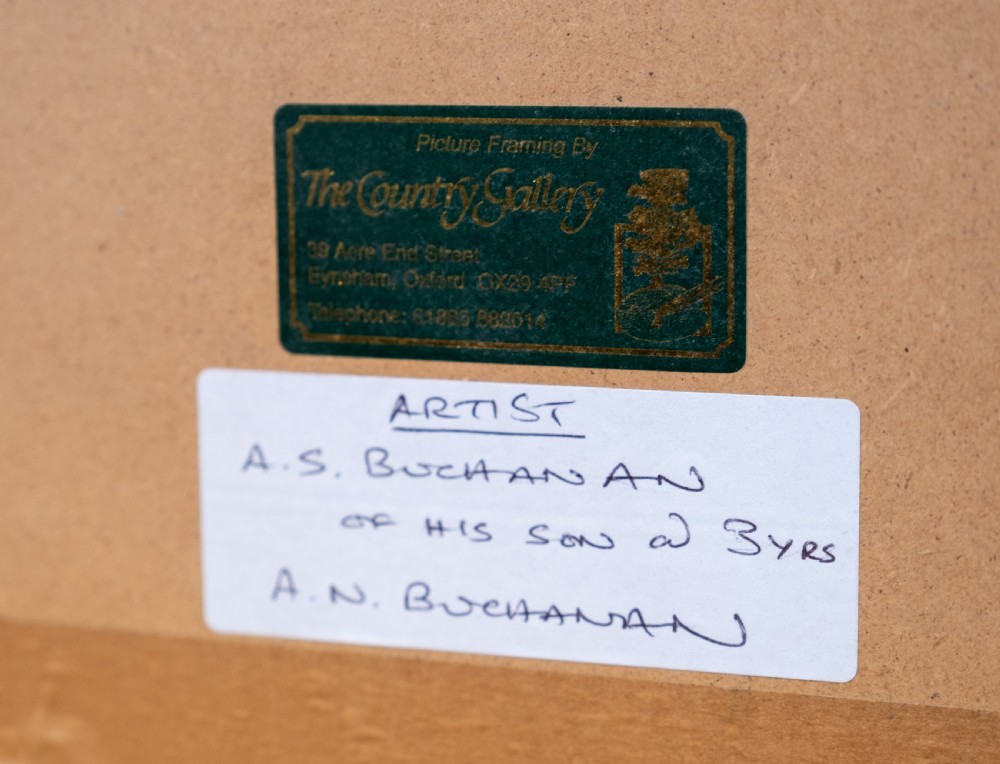 Picture Framing By
The Country Gallery
39 Acre End Street
Eynsham, Oxford OX29 4PF
Telephone:
ARTIST
A.S. BUCHANAN
OF HIS SON @ 3 YRS
A.N. BUCHANAN